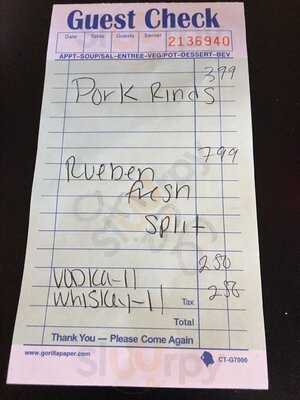 Guest Check
Date Table Guests Server 2136940
APPT-SOUP/SAL-ENTREE-VEG/POT-DESSERT-BEV
399
Pork Rinds
799
Rueben
fresh
split
250
Vodka-11
Whiskey-11 Tax 250
Total
Thank You — Please Come Again
www.gorillapaper.com CT-G7000